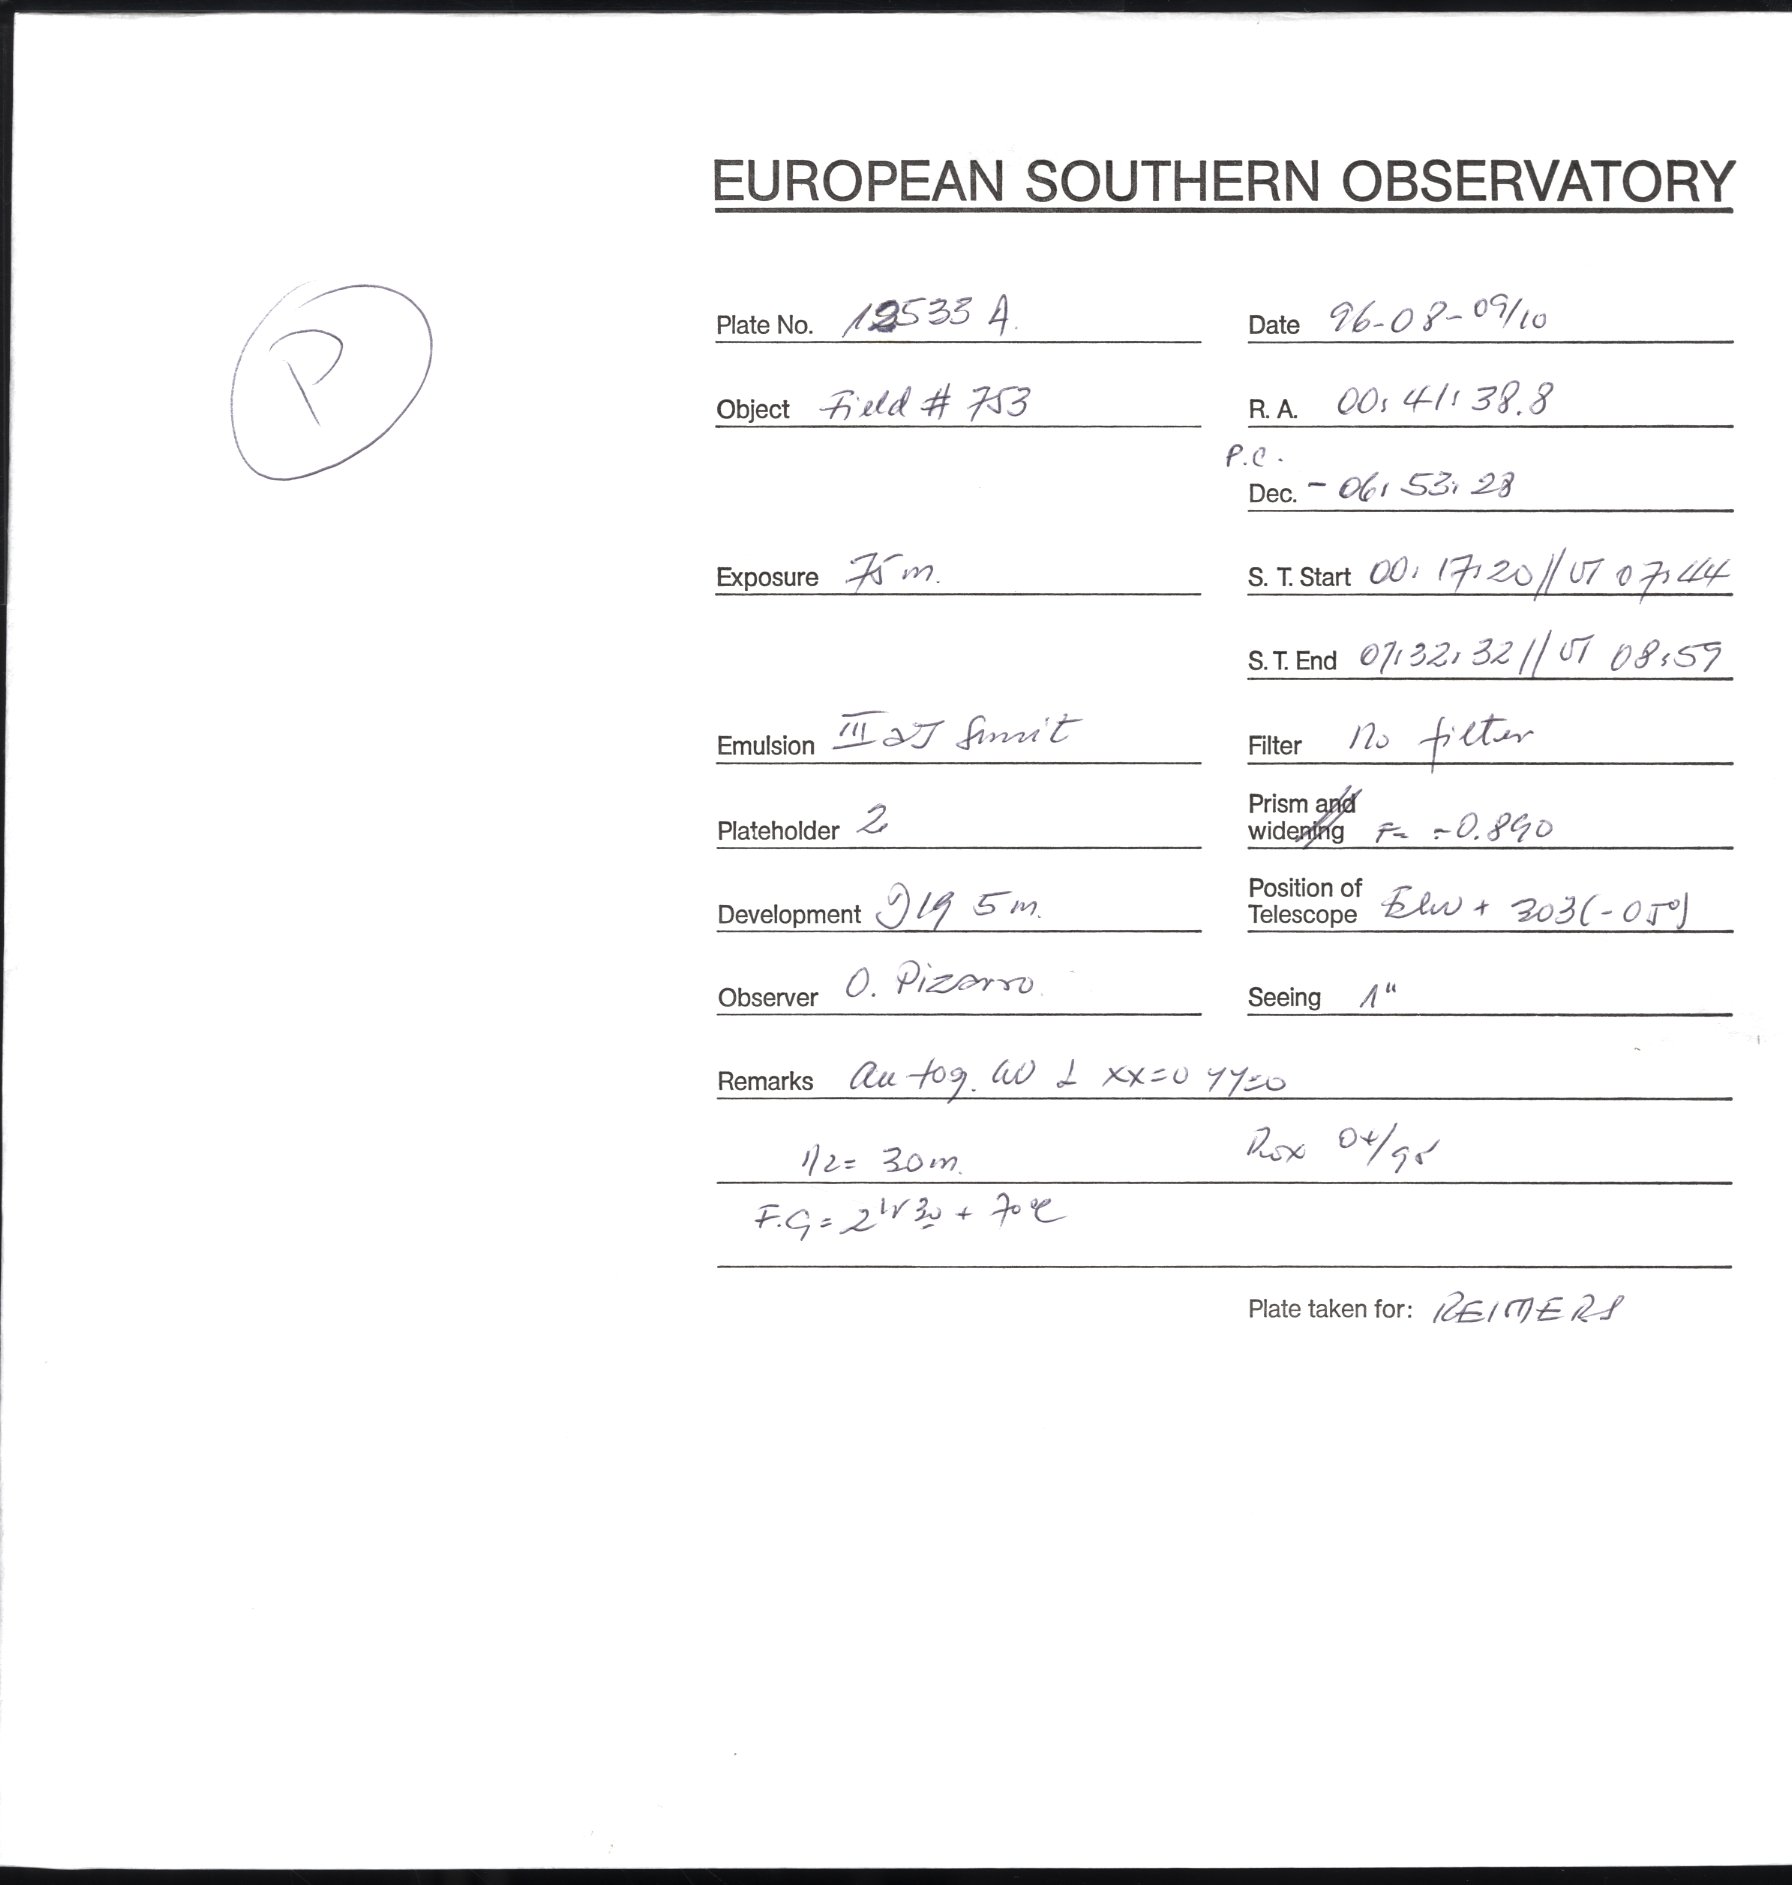 EUROPEAN SOUTHERN OBSERVATORY
P
Plate No. 12533 A. Date 96-08-09/10
Object Field # 753 R. A. 00: 41: 38.8
P.C.
Dec. - 06: 53: 28
Exposure 75 m. S. T. Start 00: 17: 20 // UT 07: 44
S. T. End 01: 32: 32 // UT 08: 59
Emulsion III aJ Filter no filter
Prism and
Plateholder 2 widening F= -0.890
Position of
Development D19 5 m. Telescope + 303 (-05°)
Observer O. Pizarro Seeing 1"
Remarks Autog. xx=0 yy=0
1/2 = 30 m.
F.G = + 70 °C
Plate taken for: REIMERS